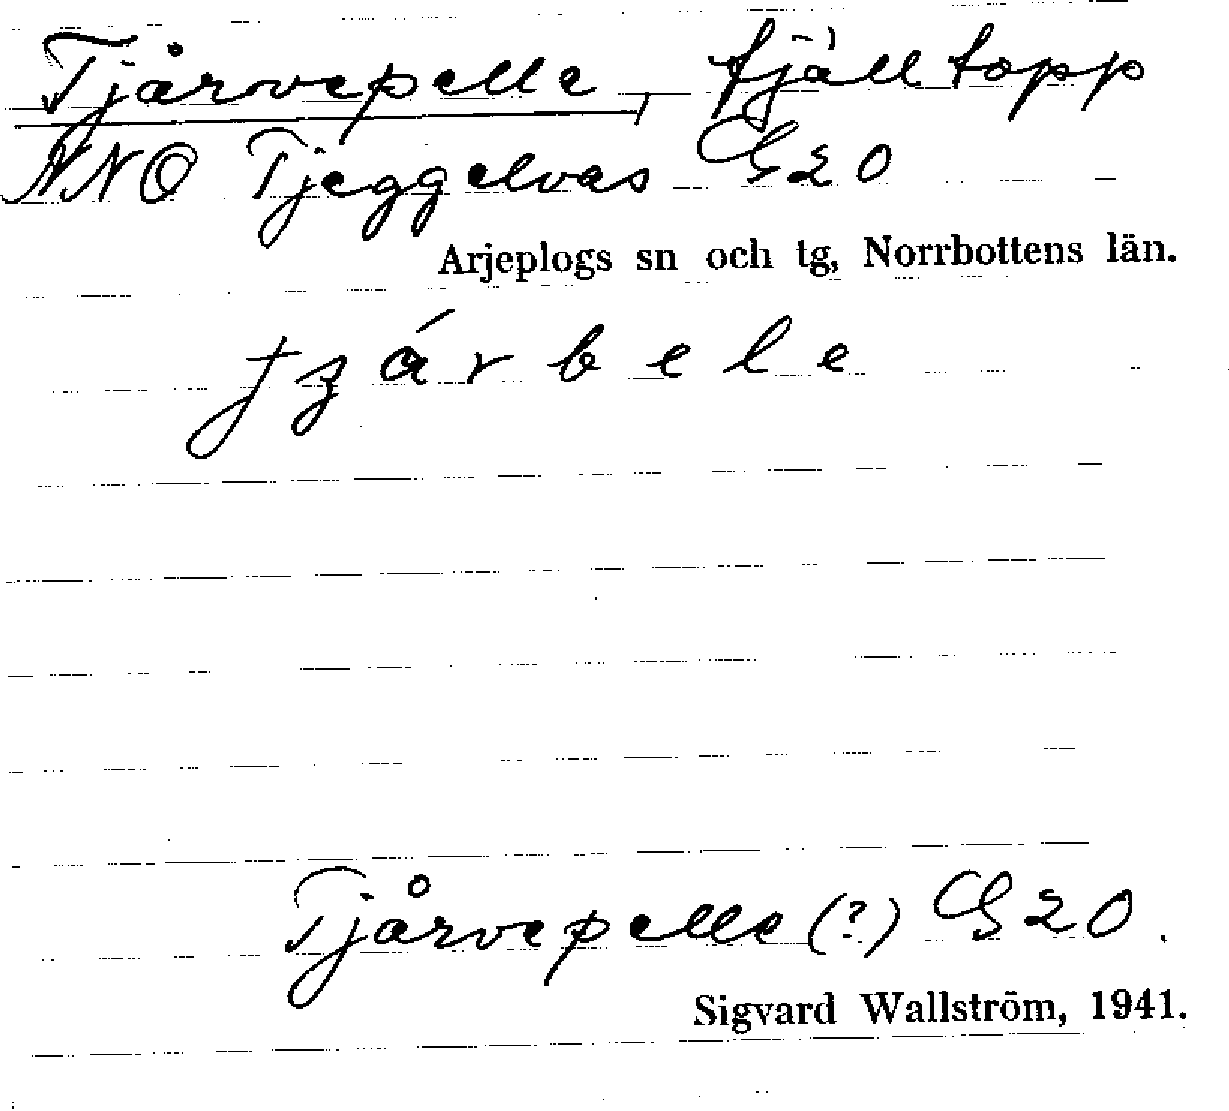 Tjårvepelle, fjälltopp
NNO Tjeggelvas G20
Arjeplogs sn och tg, Norrbottens län.
tʒárbele
Tjårvepelle (?) G20.
Sigvard Wallström, 1941.